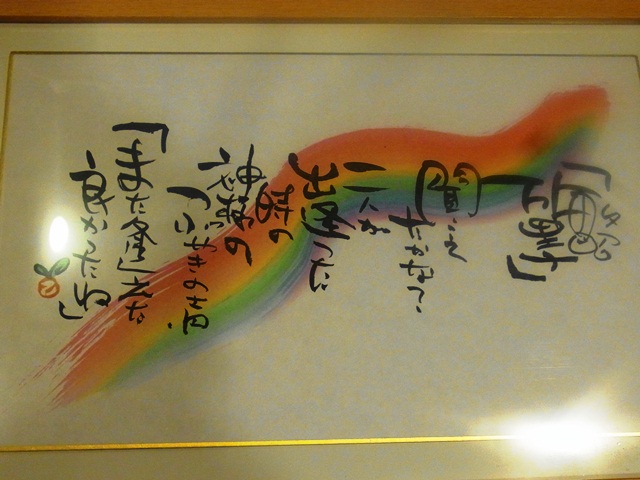 聞こえ
たかな？
二人が
出逢った
時の
神様の
つぶやきの声
「また逢えた
良かったね」